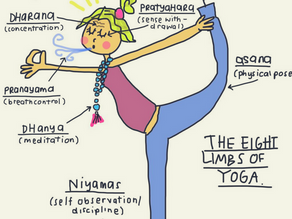 DHARANA
(concentration)
PRATYAHARA
(sense with-
drawal)
asana
(physical pose
PRANAYAMA
(breath control)
DHANYA
(meditation)
THE EIGHT
LIMBS OF
YOGA.
Niyamas
(self observation/
discipline)